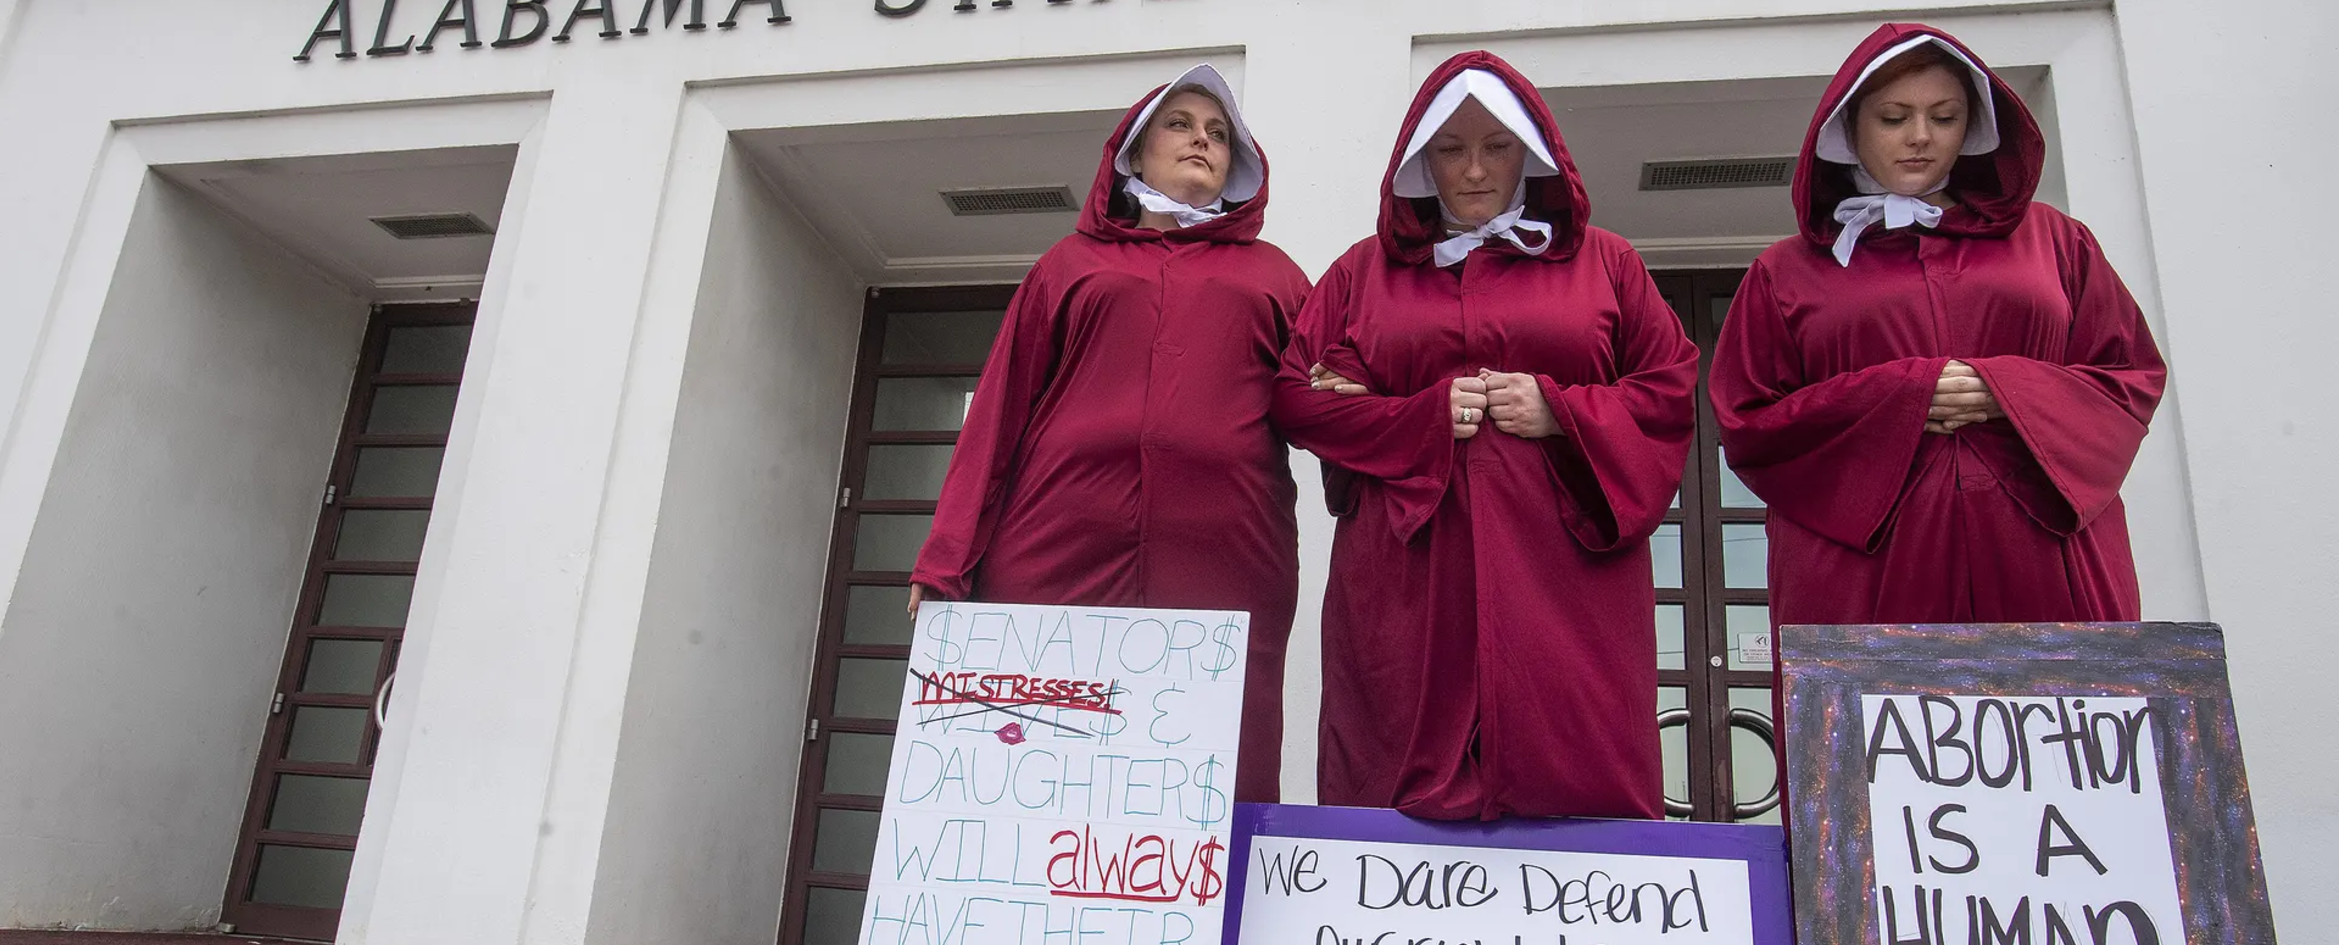 ALABAMA STA
$ENATOR$
MISTRESSES!
WIVE$ &
DAUGHTER$
WILL alway$
HAVE THEIR
We Dare Defend
ABortion
IS A
HUMAN